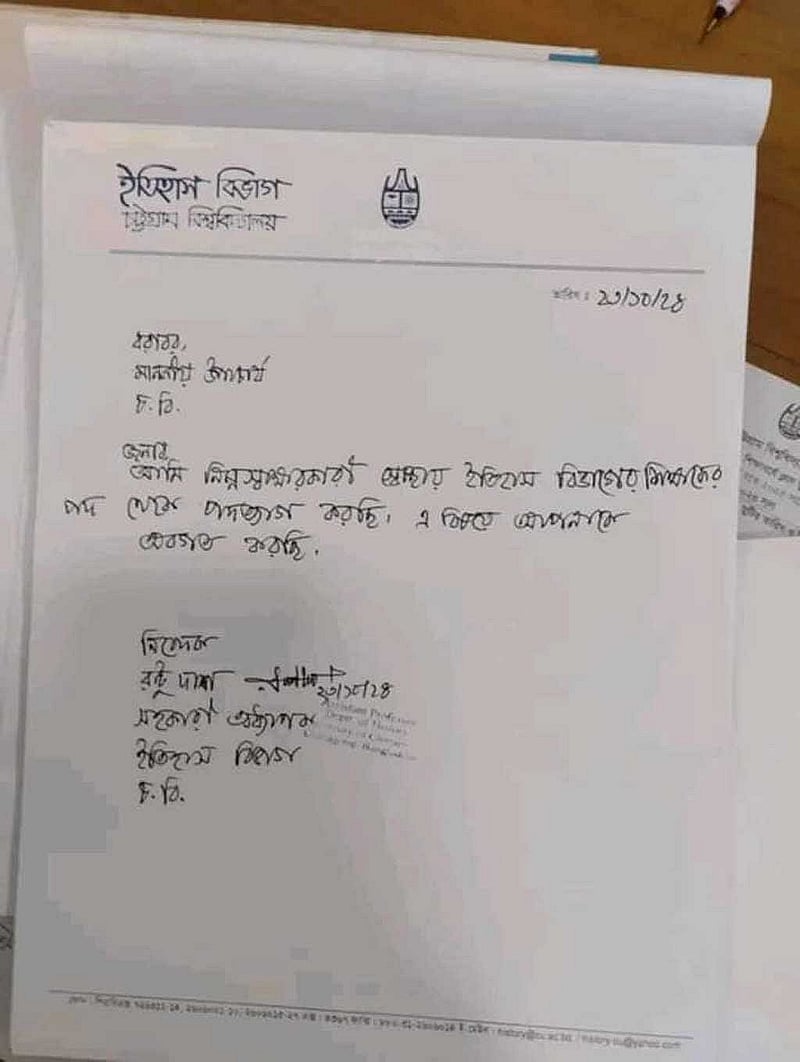 ইতিহাস বিভাগ
চট্টগ্রাম বিশ্ববিদ্যালয়
তারিখ : ২৩/১০/২৪
বরাবর,
মাননীয় উপাচার্য
চ. বি.
জনাব,
আমি নিম্নস্বাক্ষরকারী স্বেচ্ছায় ইতিহাস বিভাগের শিক্ষকের
পদ থেকে পদত্যাগ করছি। এ বিষয়ে আপনাকে
অবগত করছি।
নিবেদক
রন্টু দাশ
২৩/১০/২৪
সহকারী অধ্যাপক
Assistant Professor
Dept. of History
ইতিহাস বিভাগ
চ. বি.